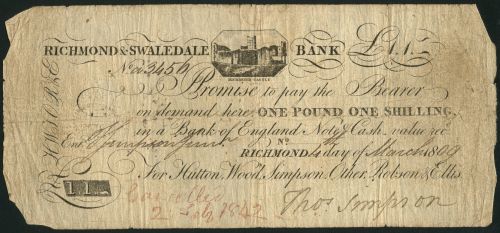 RICHMOND & SWALEDALE BANK £1.1.-
RICHMOND CASTLE
No a3456
Promise to pay the Bearer
on demand here, ONE POUND ONE SHILLING,
in a Bank of England Note & Cash, value recd
No
RICHMOND 4th day of March 1809
For Hutton, Wood, Simpson, Other, Robson & Ellis.
£1.1.
Thos Simpson
Cancelled
2 Feb 1842